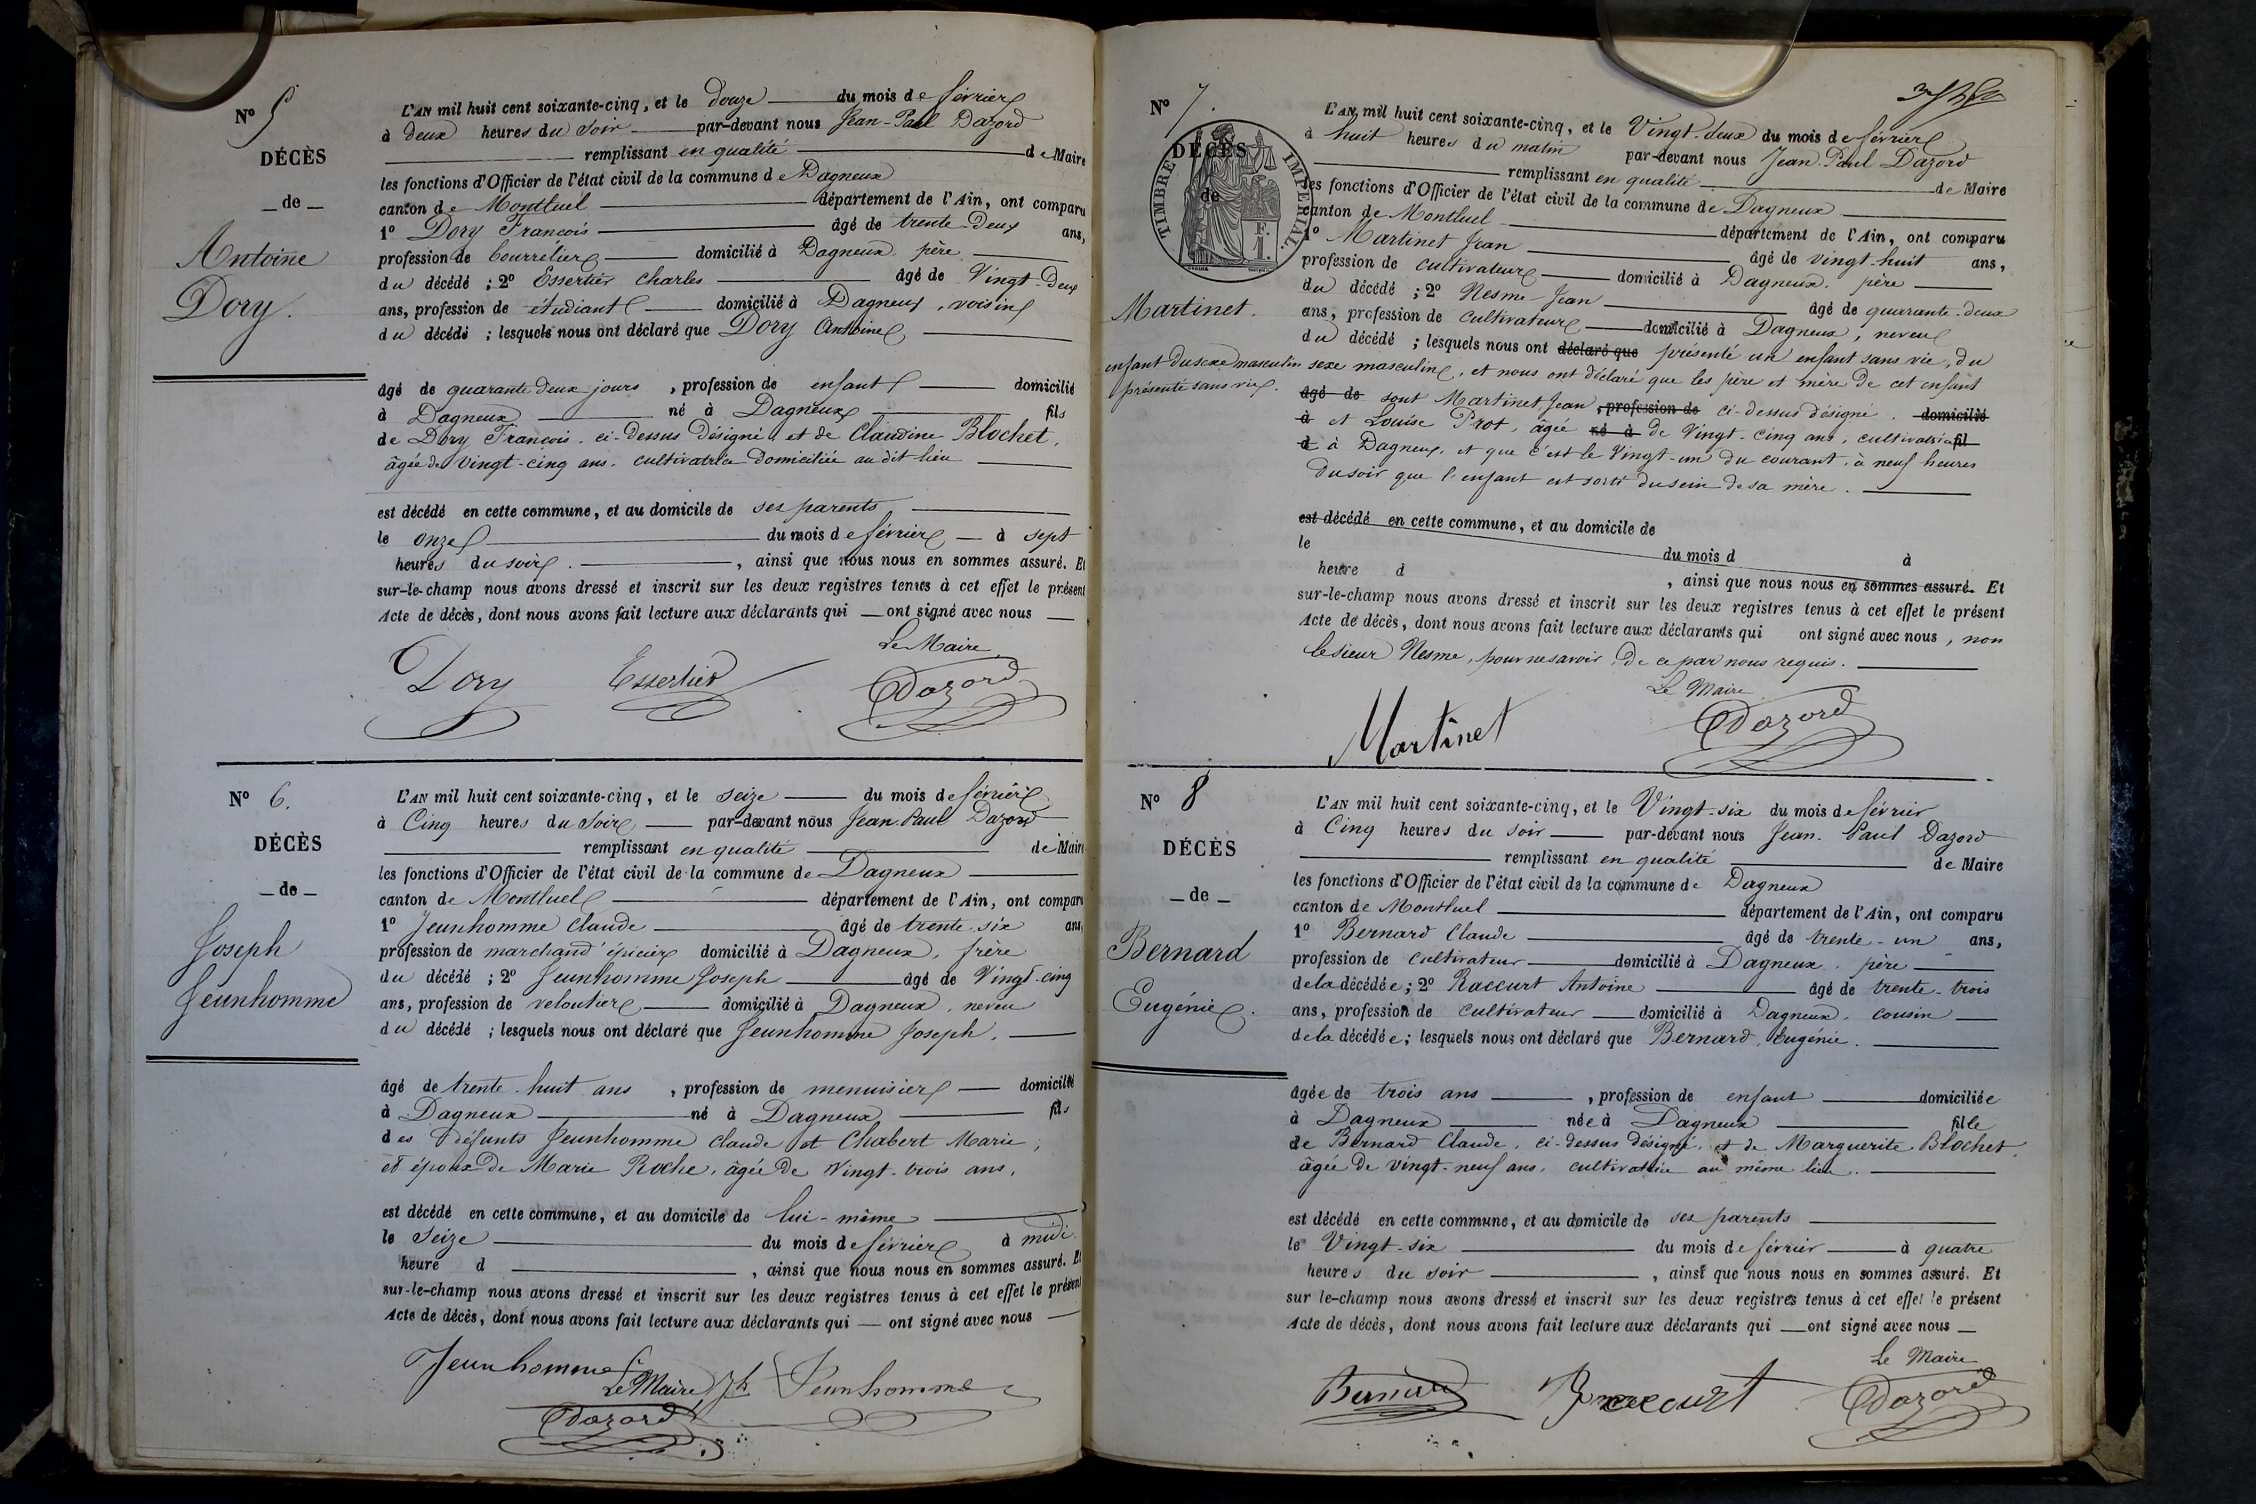 Nº 5
DÉCÈS
_ de _
Antoine
Dory.
L'AN mil huit cent soixante-cinq, et le douze du mois de février
à deux heures du soir par-devant nous Jean-Paul Dazord
remplissant en qualité de Maire
les fonctions d'Officier de l'état civil de la commune de Dagneux
canton de Montluel département de l'Ain, ont comparu
1º Dory François âgé de trente-deux ans,
profession de bourrelier domicilié à Dagneux père
du décédé ; 2º Essertier Charles âgé de Vingt-deux
ans, profession de étudiant domicilié à Dagneux, voisin
du décédé ; lesquels nous ont déclaré que Dory Antoine
âgé de quarante deux jours , profession de enfant domicilié
à Dagneux né à Dagneux fils
de Dory François, ci-dessus désigné et de Claudine Blochet,
âgée de vingt-cinq ans, cultivatrice domiciliée au dit lieu
est décédé en cette commune, et au domicile de ses parents
le onze du mois de février à sept
heures du soir , ainsi que nous nous en sommes assuré. Et
sur-le-champ nous avons dressé et inscrit sur les deux registres tenus à cet effet le présent
Acte de décès, dont nous avons fait lecture aux déclarants qui ont signé avec nous
Le Maire
Dory Essertier Dazord
Nº 6.
DÉCÈS
_ de _
Joseph
Jeunhomme
L'AN mil huit cent soixante-cinq, et le seize du mois de février
à Cinq heures du soir par-devant nous Jean Paul Dazord
remplissant en qualité de Maire
les fonctions d'Officier de l'état civil de la commune de Dagneux
canton de Montluel département de l'Ain, ont comparu
1º Jeunhomme Claude âgé de trente-six ans,
profession de marchand épicier domicilié à Dagneux, frère
du décédé ; 2º Jeunhomme Joseph âgé de Vingt-cinq
ans, profession de veloutier domicilié à Dagneux, neveu
du décédé ; lesquels nous ont déclaré que Jeunhomme Joseph,
âgé de trente-huit ans , profession de menuisier domicilié
à Dagneux né à Dagneux fils
des défunts Jeunhomme Claude et Chabert Marie,
et époux de Marie Roche, âgée de Vingt-trois ans,
est décédé en cette commune, et au domicile de lui-même
le seize du mois de février à midi
heure d , ainsi que nous nous en sommes assuré. Et
sur-le-champ nous avons dressé et inscrit sur les deux registres tenus à cet effet le présent
Acte de décès, dont nous avons fait lecture aux déclarants qui ont signé avec nous
Jeunhomme Le Maire Jh Jeunhomme
Dazord
Nº 7.
DÉCÈS
de
TIMBRE IMPERIAL.
F.
1.
Martinet.
enfant du sexe masculin
présenté sans vie.
L'AN mil huit cent soixante-cinq, et le Vingt-deux du mois de février
à huit heures du matin par-devant nous Jean Paul Dazord
remplissant en qualité de Maire
les fonctions d'Officier de l'état civil de la commune de Dagneux
canton de Montluel département de l'Ain, ont comparu
1º Martinet Jean âgé de vingt-huit ans,
profession de cultivateur domicilié à Dagneux, père
du décédé ; 2º Nesme Jean âgé de quarante-deux
ans, profession de cultivateur domicilié à Dagneux, neveu
du décédé ; lesquels nous ont déclaré que présenté un enfant sans vie, du
sexe masculin, et nous ont déclaré que les père et mère de cet enfant
âgé de sont Martinet Jean, profession de ci-dessus désigné, domicilié
à et Louise Prot, âgée né à de Vingt-cinq ans, cultivatrice fil
d à Dagneux, et que c'est le Vingt-un du courant, à neuf heures
du soir que l'enfant est sorti du sein de sa mère.
est décédé en cette commune, et au domicile de
le du mois d à
heure d , ainsi que nous nous en sommes assuré. Et
sur-le-champ nous avons dressé et inscrit sur les deux registres tenus à cet effet le présent
Acte de décès, dont nous avons fait lecture aux déclarants qui ont signé avec nous, non
le sieur Nesme, pour ne savoir, de ce par nous requis.
Le Maire
Martinet Dazord
Nº 8
DÉCÈS
_ de _
Bernard
Eugénie.
L'AN mil huit cent soixante-cinq, et le Vingt-six du mois de février
à Cinq heures du soir par-devant nous Jean-Paul Dazord
remplissant en qualité de Maire
les fonctions d'Officier de l'état civil de la commune de Dagneux
canton de Montluel département de l'Ain, ont comparu
1º Bernard Claude âgé de trente-un ans,
profession de cultivateur domicilié à Dagneux, père
de la décédée ; 2º Raccurt Antoine âgé de trente-trois
ans, profession de cultivateur domicilié à Dagneux, cousin
de la décédée ; lesquels nous ont déclaré que Bernard, Eugénie.
âgée de trois ans , profession de enfant domiciliée
à Dagneux née à Dagneux fille
de Bernard Claude, ci-dessus désigné, et de Marguerite Blochet,
âgée de vingt-neuf ans, cultivatrice au même lieu.
est décédé en cette commune, et au domicile de ses parents
le Vingt-six du mois de février à quatre
heures du soir , ainsi que nous nous en sommes assuré. Et
sur le-champ nous avons dressé et inscrit sur les deux registres tenus à cet effet le présent
Acte de décès, dont nous avons fait lecture aux déclarants qui ont signé avec nous
Le Maire
Bernard Raccurt Dazord